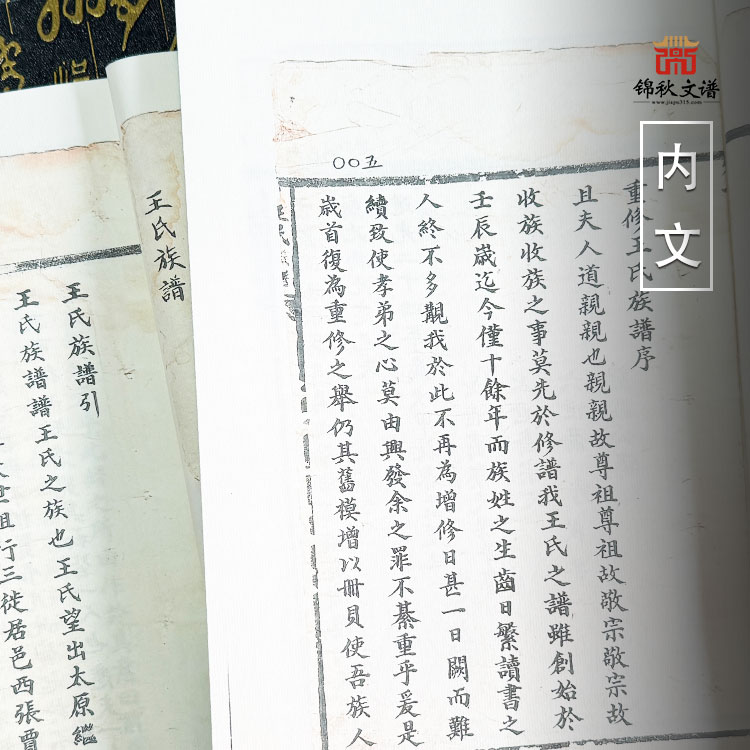 锦秋文谱
www.jiapu315.com
内文
〇〇五
重修王氏族譜序
且夫人道親親也親親故尊祖尊祖故敬宗敬宗故
收族收族之事莫先於修譜我王氏之譜雖創始於
壬辰歲迄今僅十餘年而族姓之生齒日繁讀書之
人終不多觀我於此不再為增修日甚一日闕而難
續致使孝弟之心莫由興發余之罪不綦重乎爰是
歲首復為重修之舉仍其舊模增以冊頁使吾族人
王氏族譜
王氏族譜引
王氏族譜譜王氏之族也王氏望出太原繼
世祖行三徒居邑西張賈